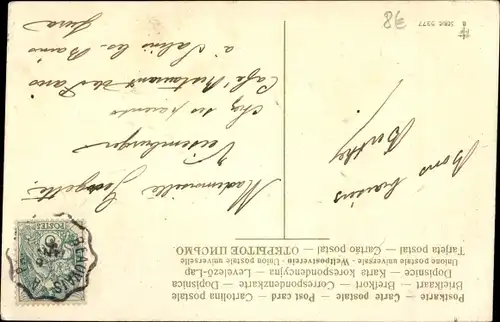 Postkarte — Carte postale — Post card — Cartolina postale
Briefkaart — Brefkort — Correspondenzkarte — Dopisnica
Dopisnice — Karta korespondencyjna — Levelező-Lap
Unione postale universale — Weltpostverein — Union postale universelle
Tarjeta postal — Cartão postal — ОТКРЫТОЕ ПИСЬМО
Mademoiselle Georgette
chez ses parents
Café Restaurant
à Salins les Bains
Jura
Bons baisers
Berthe
POSTES
5
Serie 5377
8€